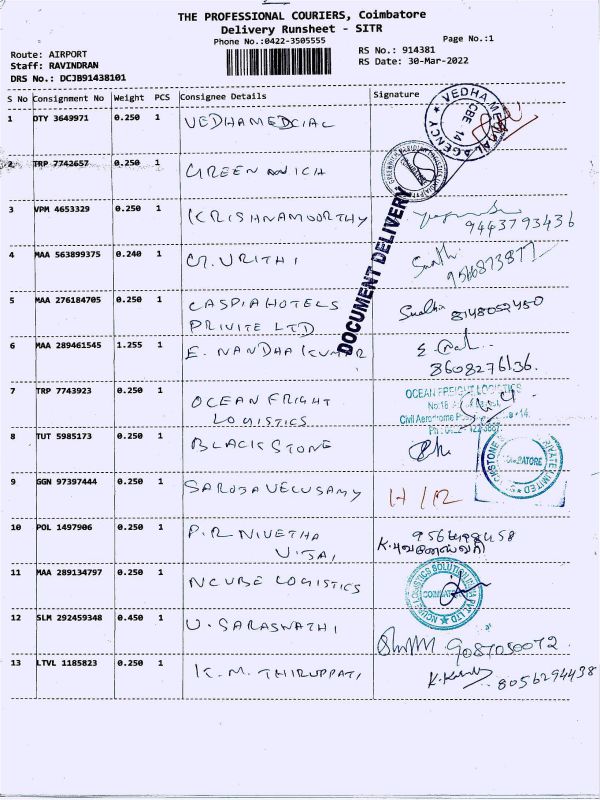 THE PROFESSIONAL COURIERS, Coimbatore
Delivery Runsheet - SITR
Phone No.:0422-3505555
Page No.:1
Route: AIRPORT
RS No.: 914381
Staff: RAVINDRAN
RS Date: 30-Mar-2022
DRS No.: DCJB91438101
S No Consignment No Weight PCS Consignee Details Signature
1 DTY 3649971 0.250 1 VEDHAMEDCIAL
VEDHA MEDICAL AGENCY CBE 14
2 TRP 7742657 0.250 1 GREEN WICH
DOCUMENT DELIVERY
3 VPM 4653329 0.250 1 KRISHNAMOORTHY
9443793436
4 MAA 563899375 0.240 1 G. URITHI
9566873877
5 MAA 276184705 0.250 1 CASPIA HOTELS 8148052450
PRIVITE LTD
6 MAA 289461545 1.255 1 E. NANDHA KUMAR
8608276136.
7 TRP 7743923 0.250 1 OCEAN FRIGHT
LOGISTICS
OCEAN FREIGHT LOGISTICS
No.16
Civil Aerodrome
8 TUT 5985173 0.250 1 BLACKSTONE
9 GGN 97397444 0.250 1 SAROJA VELUSAMY
10 POL 1497906 0.250 1 P.R NIVETHA
11 MAA 289134797 0.250 1 NCUBE LOGISTICS
NCUBE LOGISTICS SOLUTION PVT LTD
12 SLM 292459348 0.450 1 U. SARASWATHI
9087050072
13 LTVL 1185823 0.250 1 K.M. THIRUPPATI
8056294438